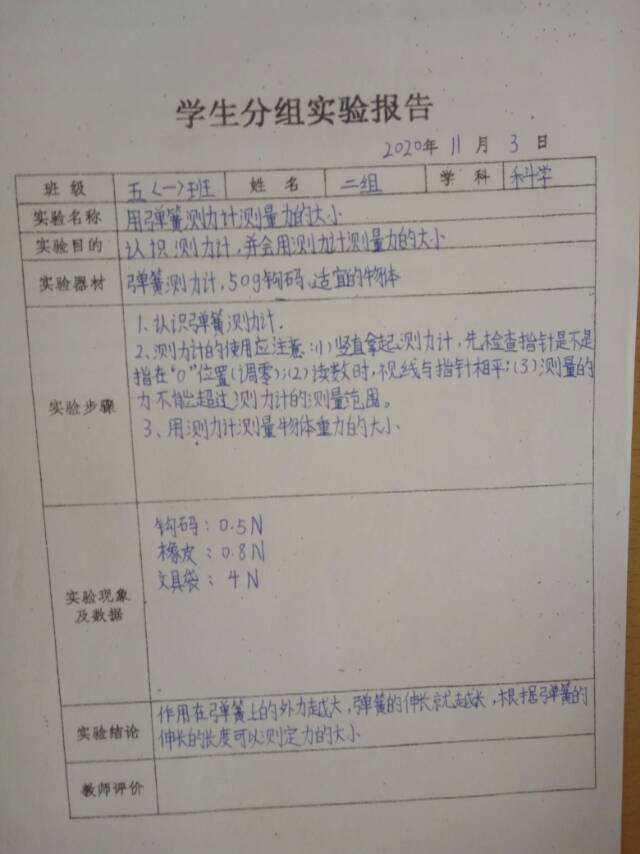 学生分组实验报告
2020年 11 月 3 日
班级 五(一)班 姓名 二组 学科 科学
实验名称 用弹簧测力计测量力的大小
实验目的 认识测力计,并会用测力计测量力的大小
实验器材 弹簧测力计,50g钩码、适宜的物体
实验步骤
1、认识弹簧测力计.
2、测力计的使用应注意:(1)竖直拿起测力计,先检查指针是不是
指在“0”位置(调零);(2)读数时,视线与指针相平;(3)测量的
力不能超过测力计的测量范围。
3、用测力计测量物体重力的大小
实验现象
及数据
钩码:0.5N
橡皮:0.8N
文具袋:4N
实验结论
作用在弹簧上的外力越大,弹簧的伸长就越长,根据弹簧的
伸长的长度可以测定力的大小
教师评价